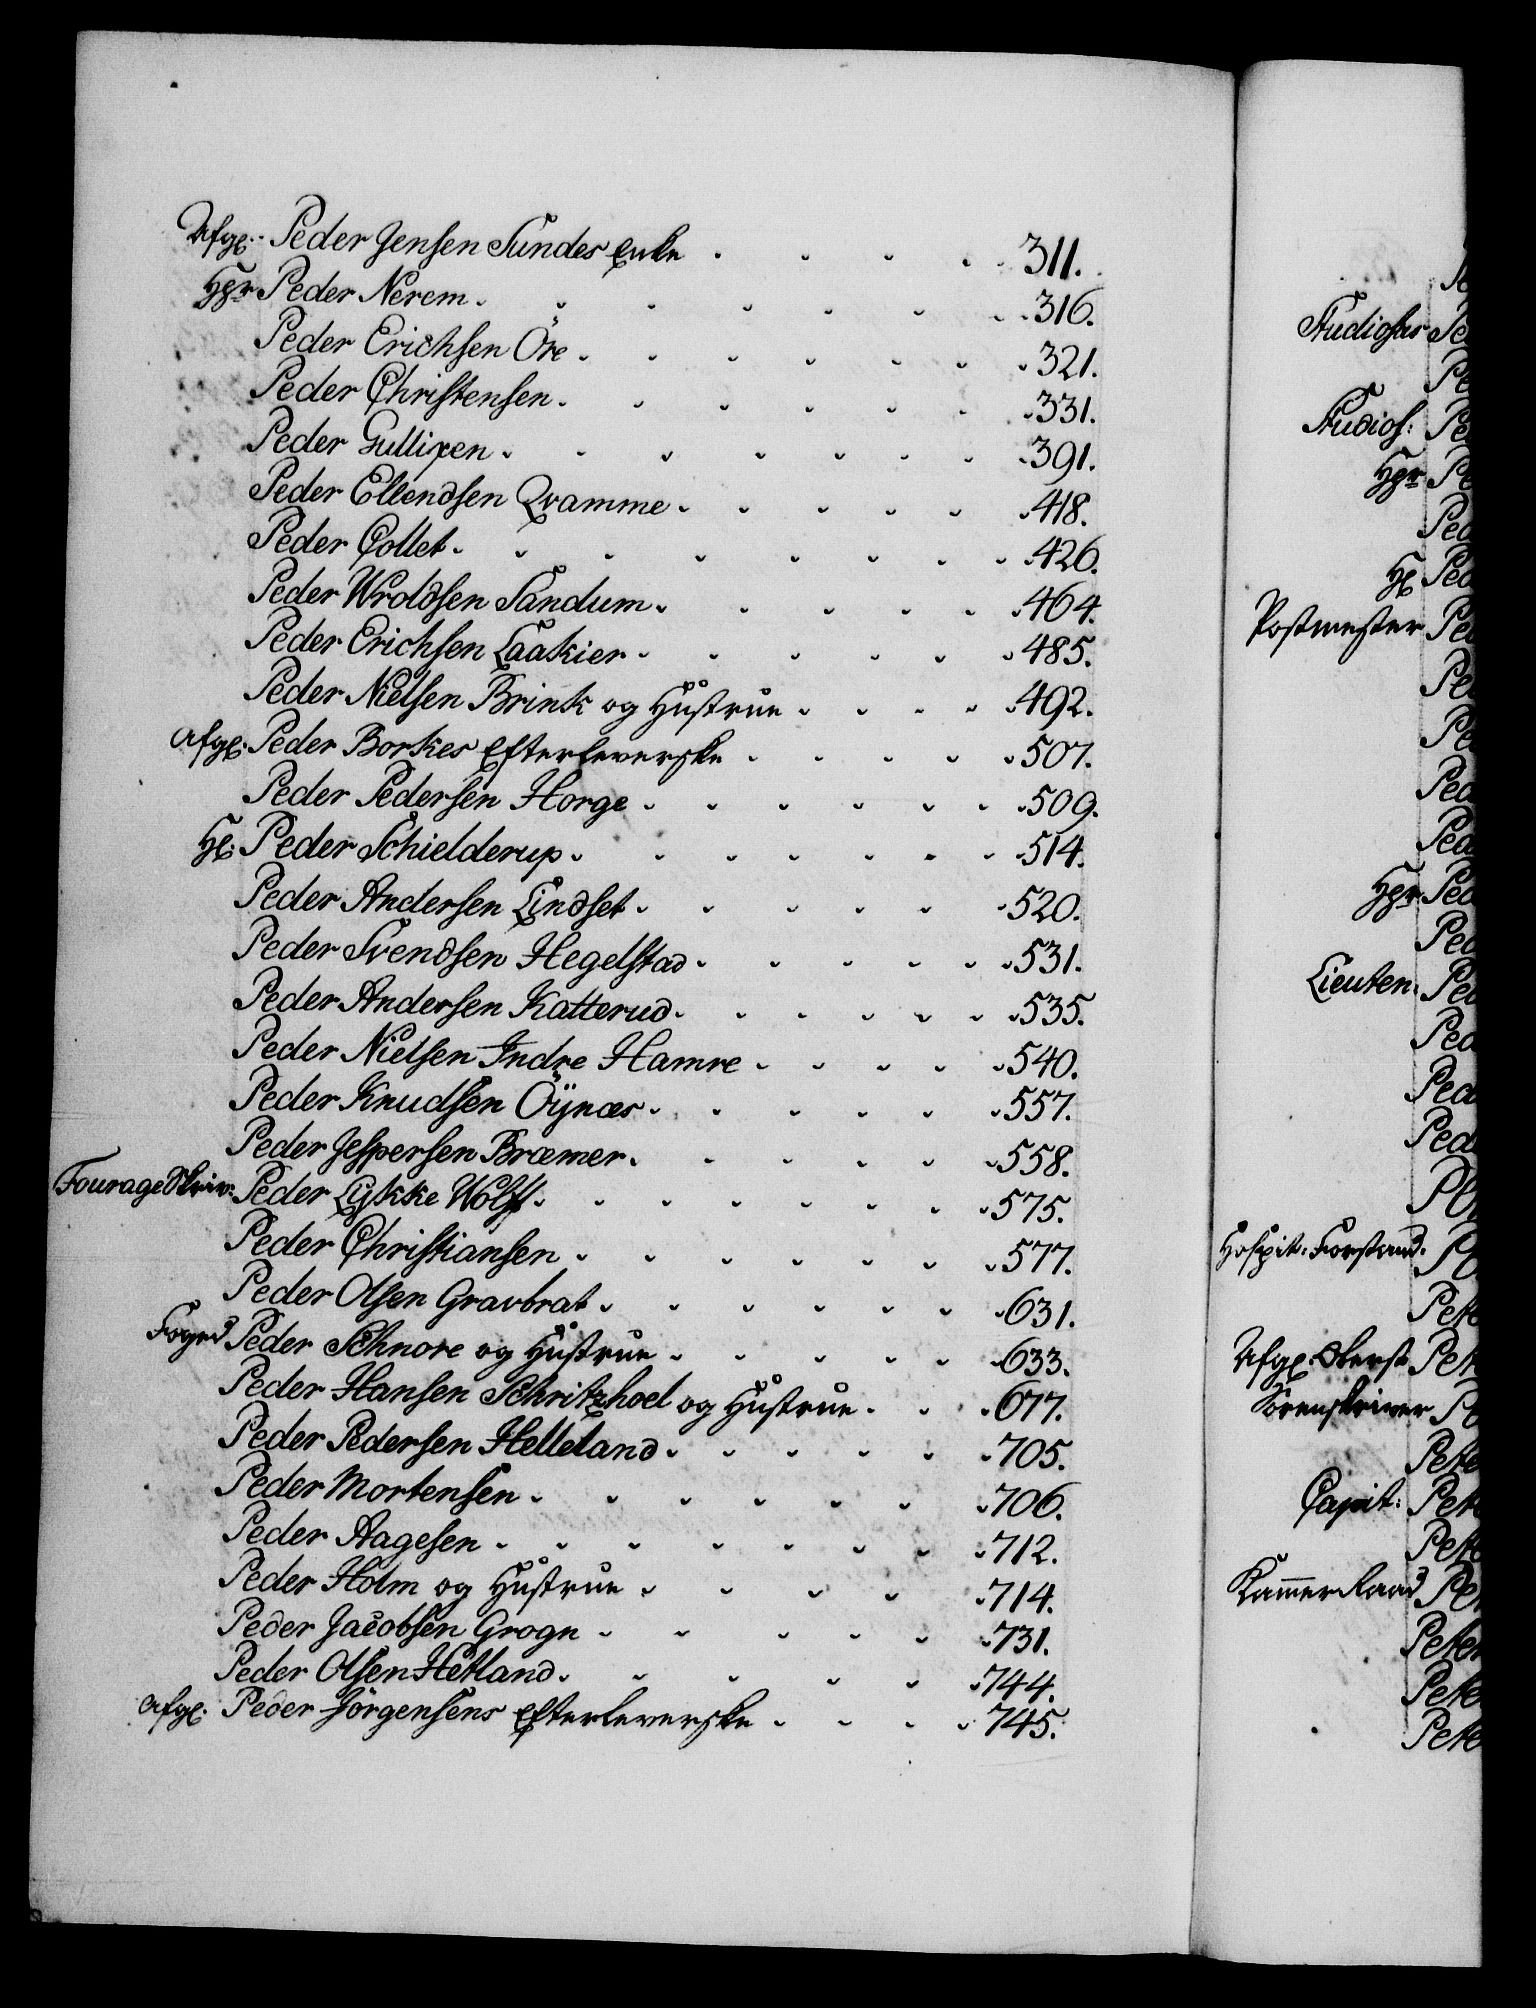 Afg: Peder Jensen Sundes Enke 311.
Hgr Peder Nerem. 316.
Peder Erichsen Öre. 321.
Peder Christensen. 331.
Peder Gullixen. 391.
Peder Ellendsen Qvamme. 418.
Peder Collet. 426.
Peder Wroldsen Sandum. 464.
Peder Erichsen Laakier. 485.
Peder Nielsen Brink og Hustrue. 492.
Afg: Peder Borkes Efterleverske. 507.
Peder Pedersen Horge. 509.
Hl: Peder Schielderup. 514.
Peder Andersen Lindset. 520.
Peder Svendsen Hegelstad. 531.
Peder Andersen Katterud. 535.
Peder Nielsen Indre Hamre. 540.
Peder Knudsen Öÿnæs. 557.
Peder Jespersen Bræmer. 558.
Fourage Skriv: Peder Lykke Wolff. 575.
Peder Christiansen. 577.
Peder Olsen Gravbrat. 631.
Foged Peder Schnore og Hustrue. 633.
Peder Hansen Schritzhoel og Hustrue. 677.
Peder Pedersen Helleland. 705.
Peder Mortensen. 706.
Peder Aagesen. 712.
Peder Holm og Hustrue. 714.
Peder Jacobsen Grogn. 731.
Peder Olsen Hetland. 744.
Afg: Peder Jörgensens Efterleverske. 745.
Studiosus Pe
Pe
Studios: Pe
Hgr Pe
Ped
Hl Ped
Postmester Pe
Pe
Pe
Ped
Ped
Hgr Ped
Ped
Lieuten: Ped
Ped
Ped
Ped
Hospit: Forstand:
Pete
Afg: Oberst Pet
Sorenskriver
Pete
Capit: Pete
Pete
Kammer Raad Pet
Peter
Pete
Pete